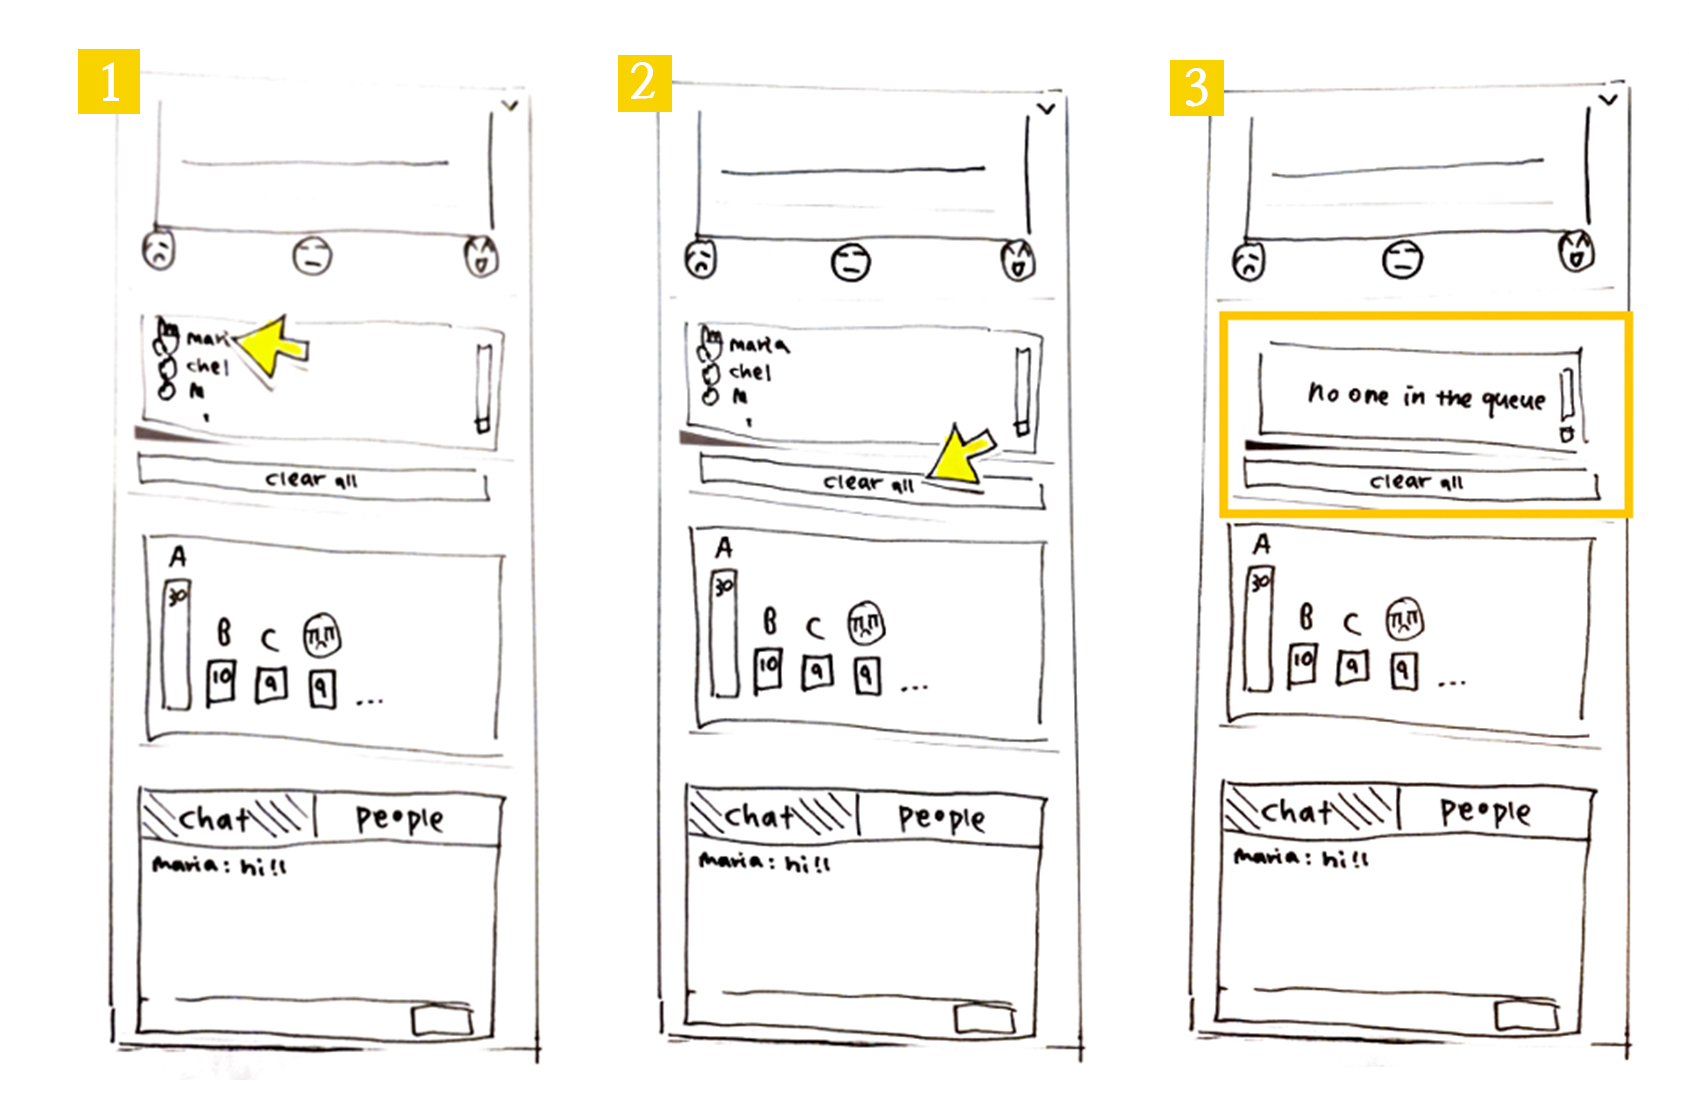 1
mari
chel
M
clear all
A
30
B
C
10
9
9
...
chat
people
maria: hi!!
2
maria
chel
M
clear all
A
30
B
C
10
9
9
...
chat
people
maria: hi!!
3
no one in the queue
clear all
A
30
B
C
10
9
9
...
chat
people
maria: hi!!